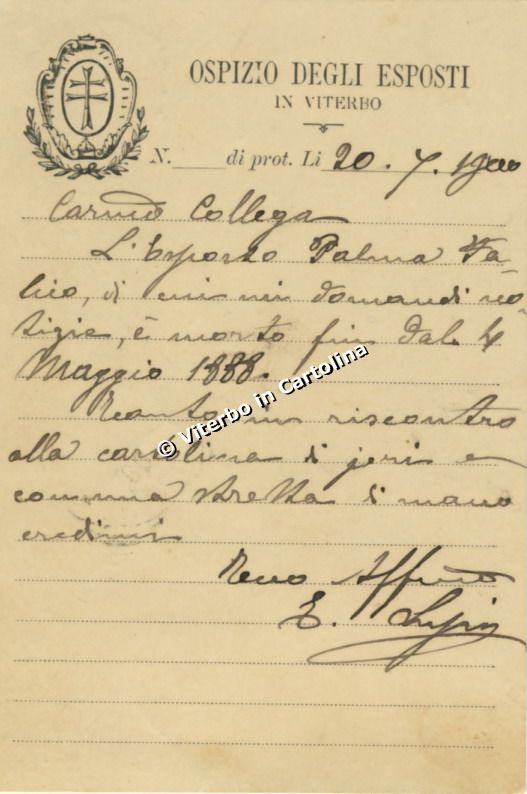 OSPIZIO DEGLI ESPOSTI
IN VITERBO
N. di prot. Li 20. 7. 1900
Carmo Collega
L'Esposto Palma Fa-
lico, di cui mi domandi no-
tizie, è morto fin dal 4
Maggio 1888.
Tanto in riscontro
alla cartolina di jeri e
con una stretta di mano
credimi
Affmo
E.
© Viterbo in Cartolina